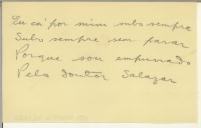 Eu cá por mim subo sempre
Subo sempre sem parar
Porque sou empurrado
Pelo doutor Salazar